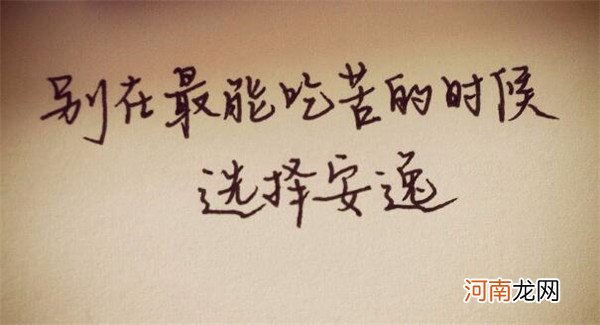 别在最能吃苦的时候
选择安逸
河南龙网